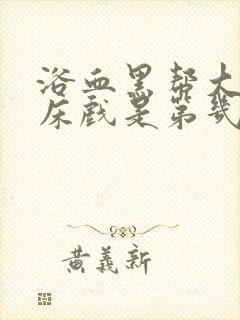 浴血黑帮大
床戏是第几
黄義新